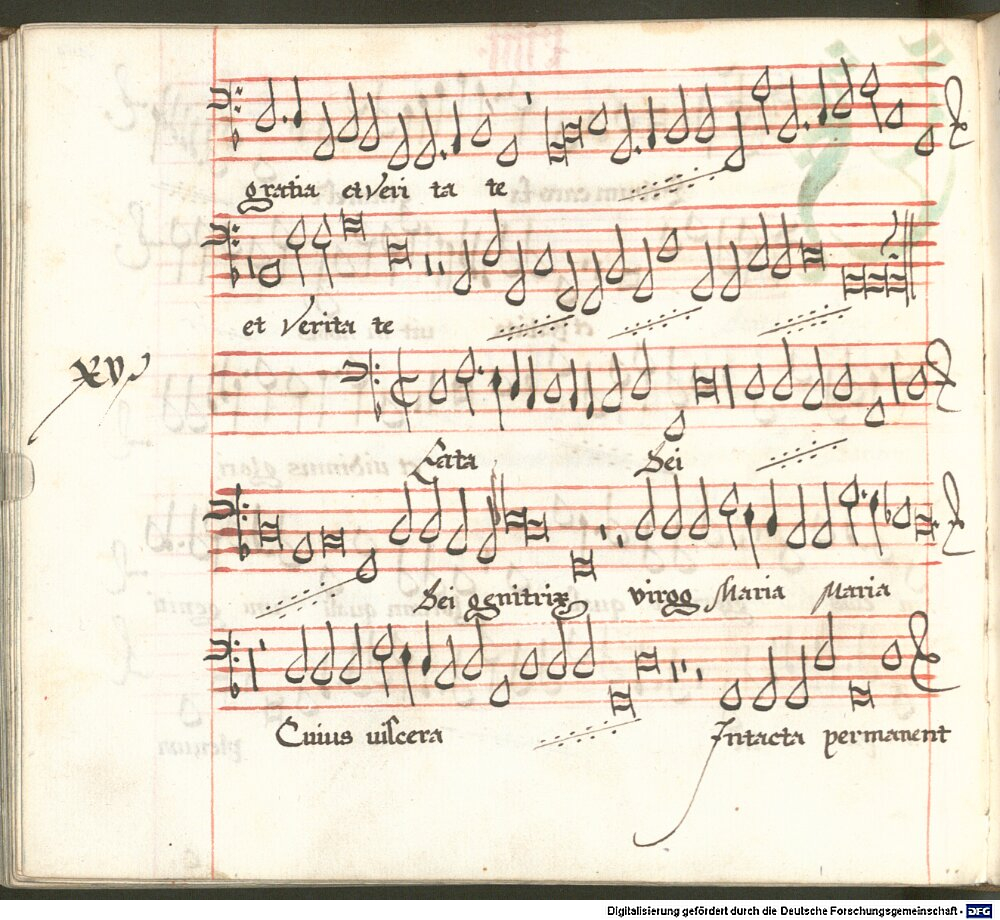 gratia et veri ta te
et verita te
xvj
Eata Dei
Dei genitrix virgo Maria Maria
Cuius viscera Intacta permanent
Digitalisierung gefördert durch die Deutsche Forschungsgemeinschaft - DFG